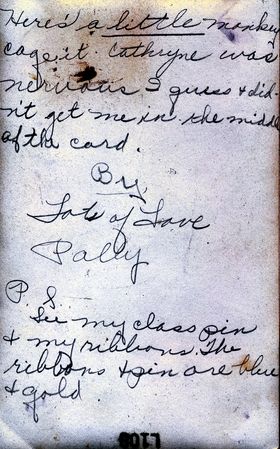 Here's a little monkey
cage it. Cathryne was
nervous I guess & did-
n't get me in the middle
of the card.
By,
Lots of Love
Pally
P. S.
See my class pin
& my ribbons. The
ribbons & pin are blue
& gold
L108